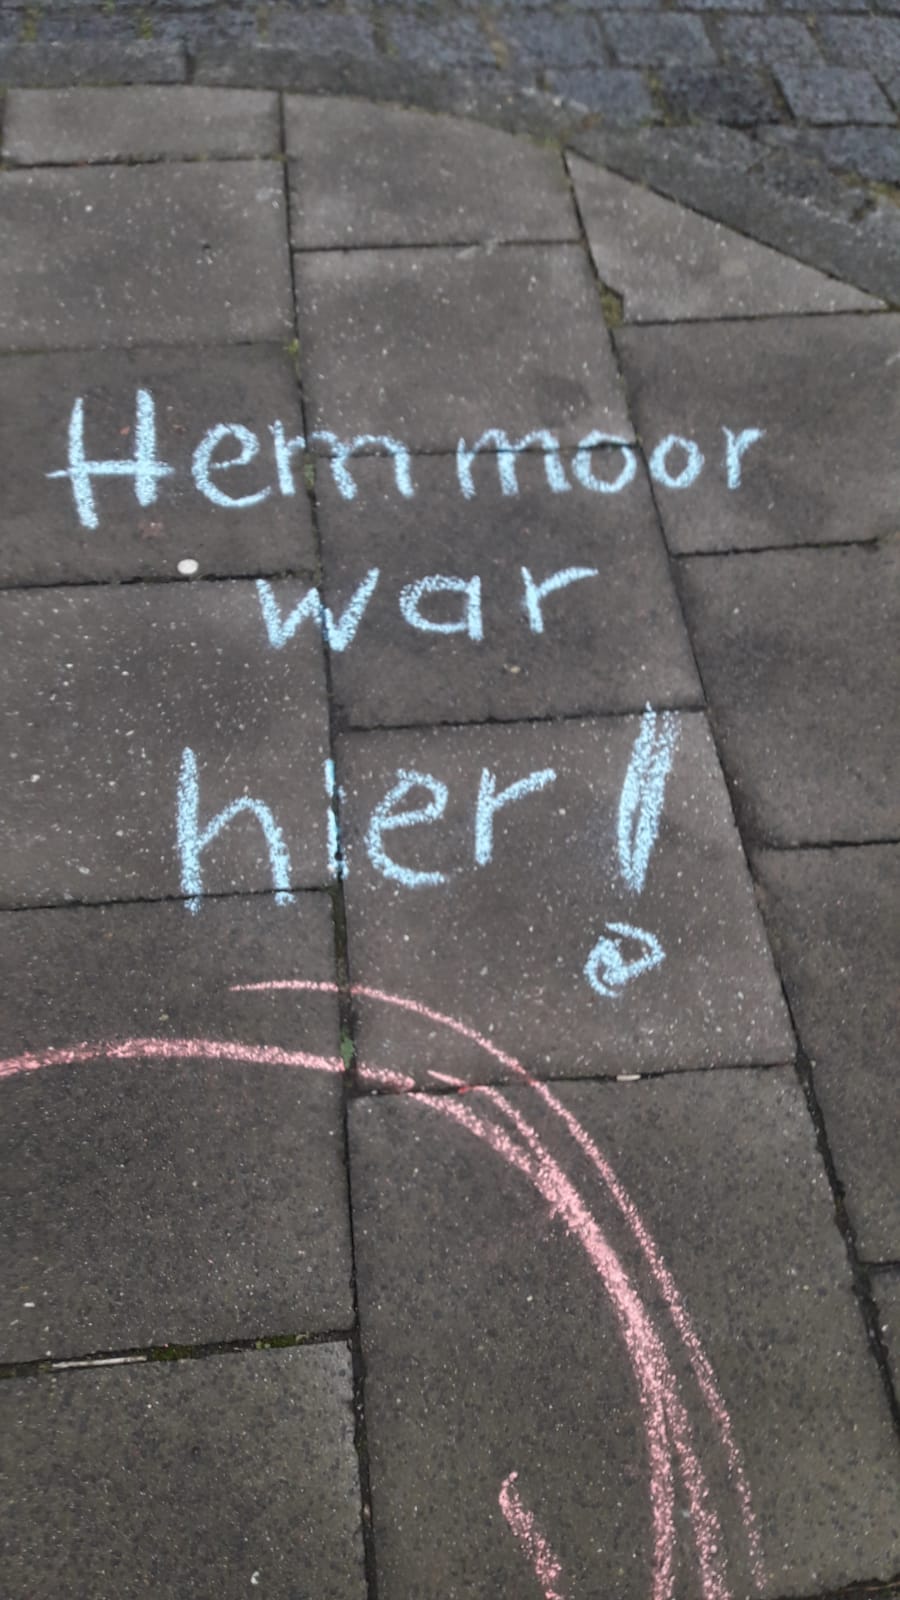 Hemmoor
war
hier!